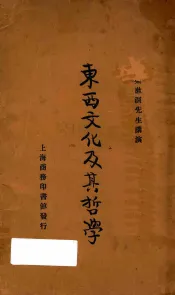 漱溟先生講演
東西文化及其哲學
上海商務印書館發行